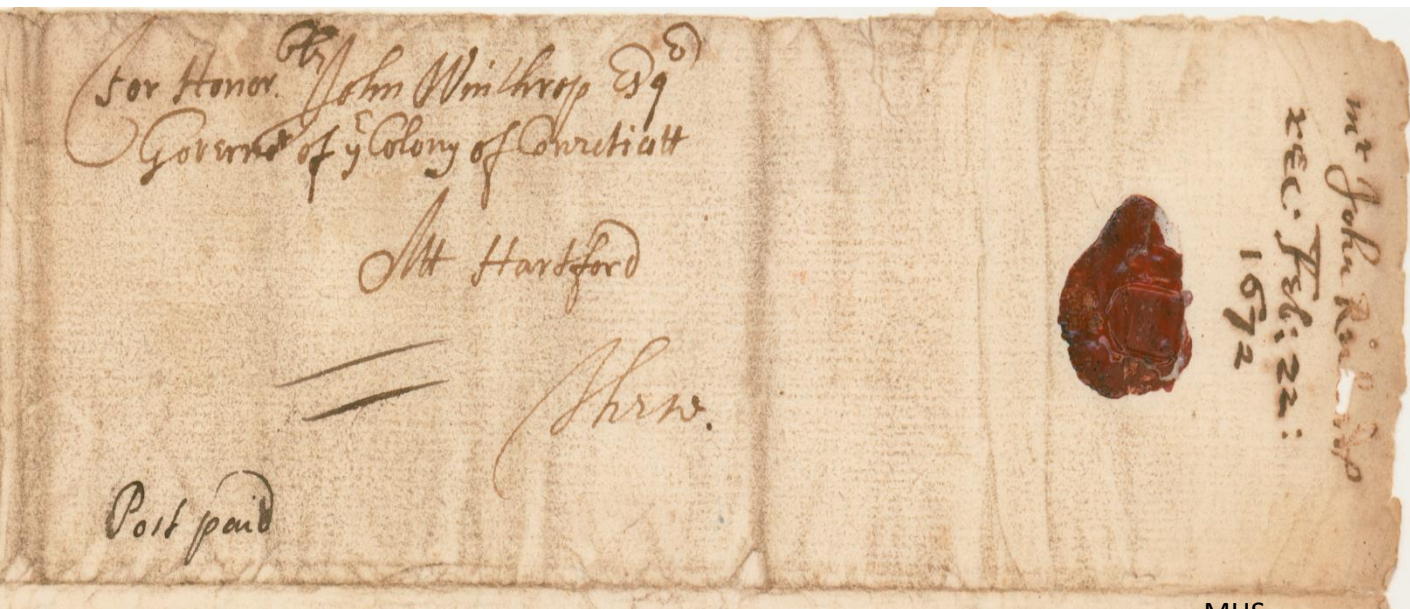 For Honor.ble John Winthrop Esqr
Governor of ye Colony of Conecticott
Att Hartford
These.
Post paid
mr John
rec. Feb: 22:
1672
MHS